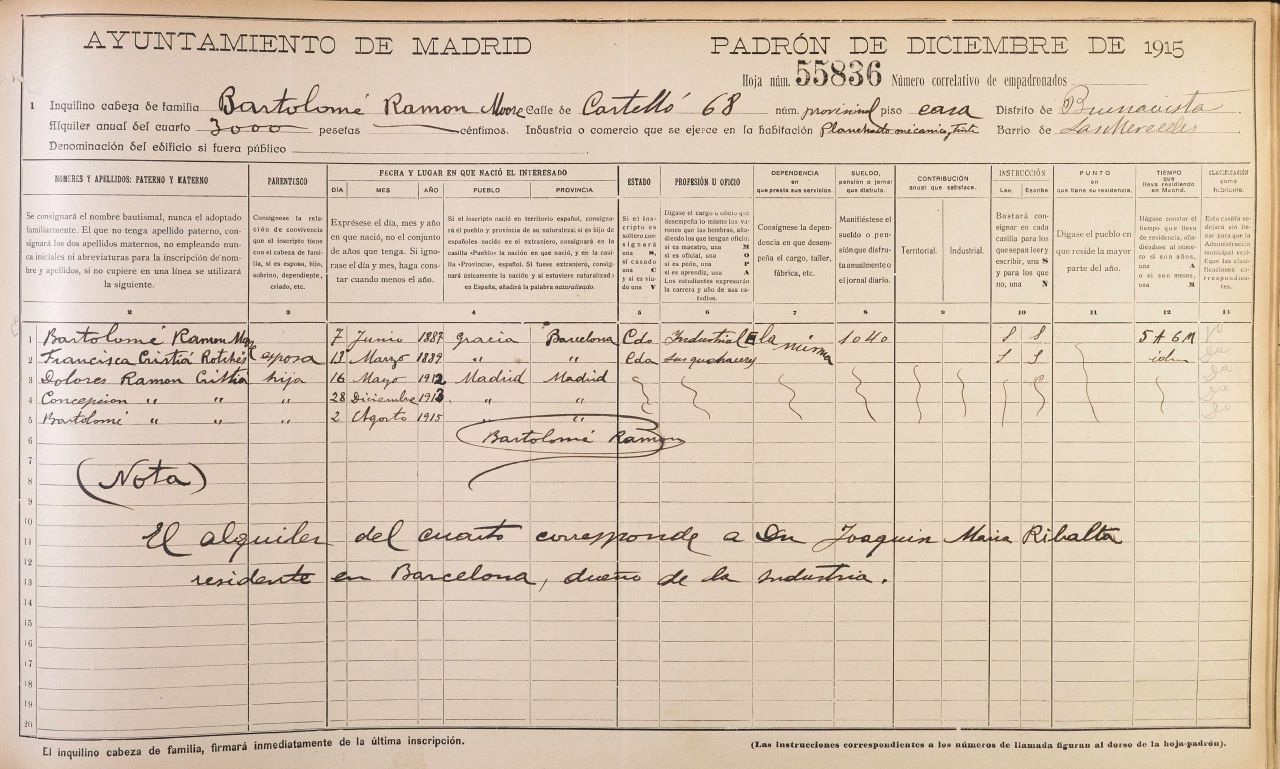 AYUNTAMIENTO DE MADRID
PADRÓN DE DICIEMBRE DE 1915
Hoja núm. 55836 Número correlativo de empadronados
1 Inquilino cabeza de familia Bartolomé Ramon Calle de Castelló 68 núm. provisinal piso casa Distrito de Buenavista
Alquiler anual del cuarto 3000 pesetas céntimos. Industria o comercio que se ejerce en la habitación Planchado mecánico Barrio de Las Mercedes
Denominación del edificio si fuera público
NOMBRES Y APELLIDOS: PATERNO Y MATERNO
PARENTISCO
FECHA Y LUGAR EN QUE NACIÓ EL INTERESADO
DÍA MES AÑO PUEBLO PROVINCIA
ESTADO
PROFESIÓN U OFICIO
DEPENDENCIA
en
que presta sus servicios
SUELDO,
pensión o jornal
que disfruta.
CONTRIBUCIÓN
anual que satisface.
INSTRUCCIÓN
Lee. Escribe
PUNTO
en
que tiene su residencia.
TIEMPO
que
lleva residiendo
en Madrid.
CLASIFICACIÓN
como
habitante.
Se consignará el nombre bautismal, nunca el adoptado
familiarmente. El que no tenga apellido paterno, con-
signará los dos apellidos maternos, no empleando nun-
ca iniciales ni abreviaturas para la inscripción de nom-
bre y apellidos, si no cupiere en una línea se utilizará
la siguiente.
Consígnese la rela-
ción de convivencia
que el inscripto tiene
con el cabeza de fami-
lia, si es esposa, hijo,
sobrino, dependiente,
criado, etc.
Exprésese el día, mes y año
en que nació, no el conjunto
de años que tenga. Si igno-
rase el día y mes, haga cons-
tar cuando menos el año.
Si el inscripto nació en territorio español, consigna-
rá el pueblo y provincia de su naturaleza; si es hijo de
españoles nacido en el extranjero, consignará en la
casilla «Pueblo» la nación en que nació, y en la casi-
lla «Provincia», español. Si fuese extranjero, consig-
nará únicamente la nación y si estuviere naturalizado
en España, añadirá la palabra naturalizado.
Si el ins-
cripto es
soltero con-
signará
una S,
si casado
una C
y si es viu-
do una V
Dígase el cargo u oficio que
desempeña lo mismo los va-
rones que las hembras, aña-
diendo los que tengan oficio:
si es maestro, una M
si es oficial, una O
si es peón, una P
si es aprendiz, una A
Los estudiantes expresarán
la carrera y año de sus es-
tudios.
Consígnese la depen-
dencia en que desem-
peña el cargo, taller,
fábrica, etc.
Manifiéstese el
sueldo o pen-
sión que disfru-
ta anualmente o
el jornal diario.
Territorial. Industrial.
Bastará con-
signar en cada
casilla para los
que sepan leer y
escribir, una S
y para los que
no, una N
Dígase el pueblo en
que reside la mayor
parte del año.
Hágase constar el
tiempo que lleva
de residencia, aña-
diéndose al núme-
ro si son años,
una A
o si son meses,
una M
Esta casilla se
dejará sin lle-
nar para que la
Administración
municipal veri-
fique las clasi-
ficaciones co-
rrespondien-
tes.
2 3 4 5 6 7 8 9 10 11 12 13
1 Bartolomé Ramon 7 Junio 1887 Gracia Barcelona Cdo Industrial E la misma 1040 S S 5 A 6 M
2 Francisca Cristiá esposa 13 Marzo 1889 " " Cda sus quehaceres S S idem
3 Dolores Ramon Cristiá hija 16 Mayo 1912 Madrid Madrid
4 Concepcion " " " 28 Diciembre 1913 " "
5 Bartolomé " " " 2 Agosto 1915 " "
6 Bartolomé Ramon
7
8 (Nota)
9
10
11 El alquiler del cuarto corresponde a Dn Joaquin Maria Ribalta
12
13 residente en Barcelona, dueño de la industria.
14
15
16
17
18
19
20
El inquilino cabeza de familia, firmará inmediatamente de la última inscripción.
(Las instrucciones correspondientes a los números de llamada figuran al dorso de la hoja-padrón).